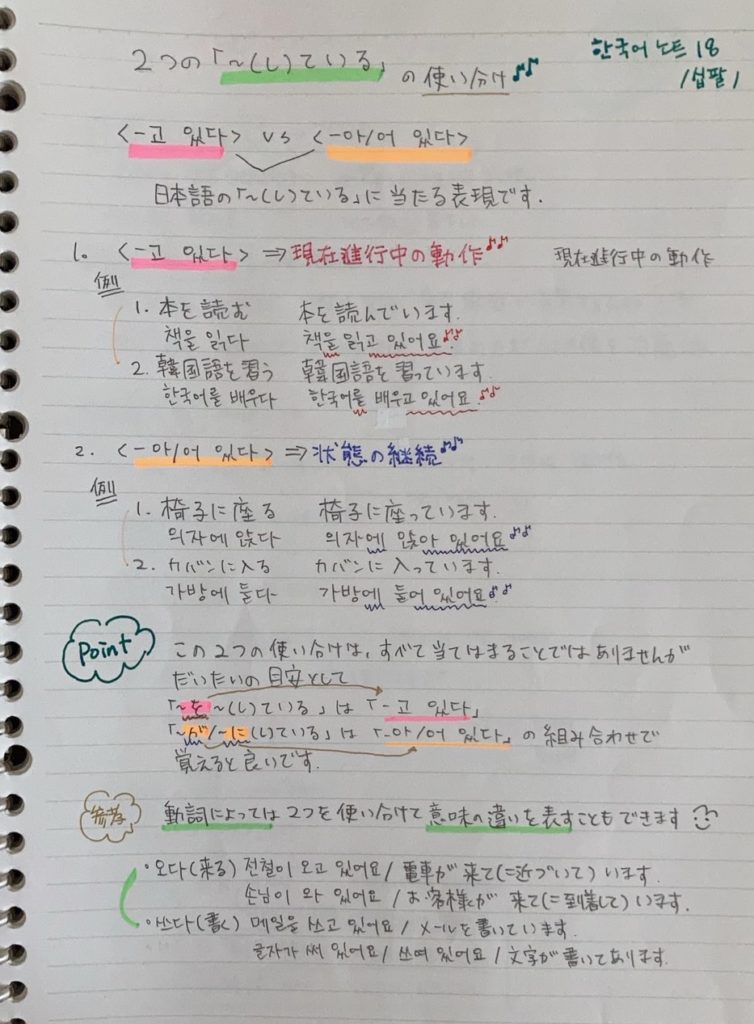 2つの「~(し)ている」の使い分け♪♪
한국어 노트 18
/십팔/
<-고 있다> vs <-아/어 있다>
日本語の「~(し)ている」に当たる表現です.
1. <-고 있다> ⇒ 現在進行中の動作♪♪ 現在進行中の動作
例
1. 本を読む 本を読んでいます.
책을 읽다 책을 읽고 있어요.♪♪
2. 韓国語を習う 韓国語を習っています.
한국어를 배우다 한국어를 배우고 있어요.♪♪
2. <-아/어 있다> ⇒ 状態の継続♪♪
例
1. 椅子に座る 椅子に座っています.
의자에 앉다 의자에 앉아 있어요.♪♪
2. カバンに入る カバンに入っています.
가방에 들다 가방에 들어 있어요.♪♪
Point
この2つの使い分けは、すべて当てはまることではありませんが
だいたいの目安として
「~を~(し)ている」は「-고 있다」
「~が/~に(し)ている」は「-아/어 있다」の組み合わせで
覚えると良いです.
参考
動詞によっては2つを使い分けて意味の違いを表すこともできます
・오다(来る) 전철이 오고 있어요/電車が来て(=近づいて)います.
손님이 와 있어요/お客様が来て(=到着して)います.
・쓰다(書く) 메일을 쓰고 있어요/メールを書いています.
글자가 써 있어요/쓰여 있어요/文字が書いてあります.